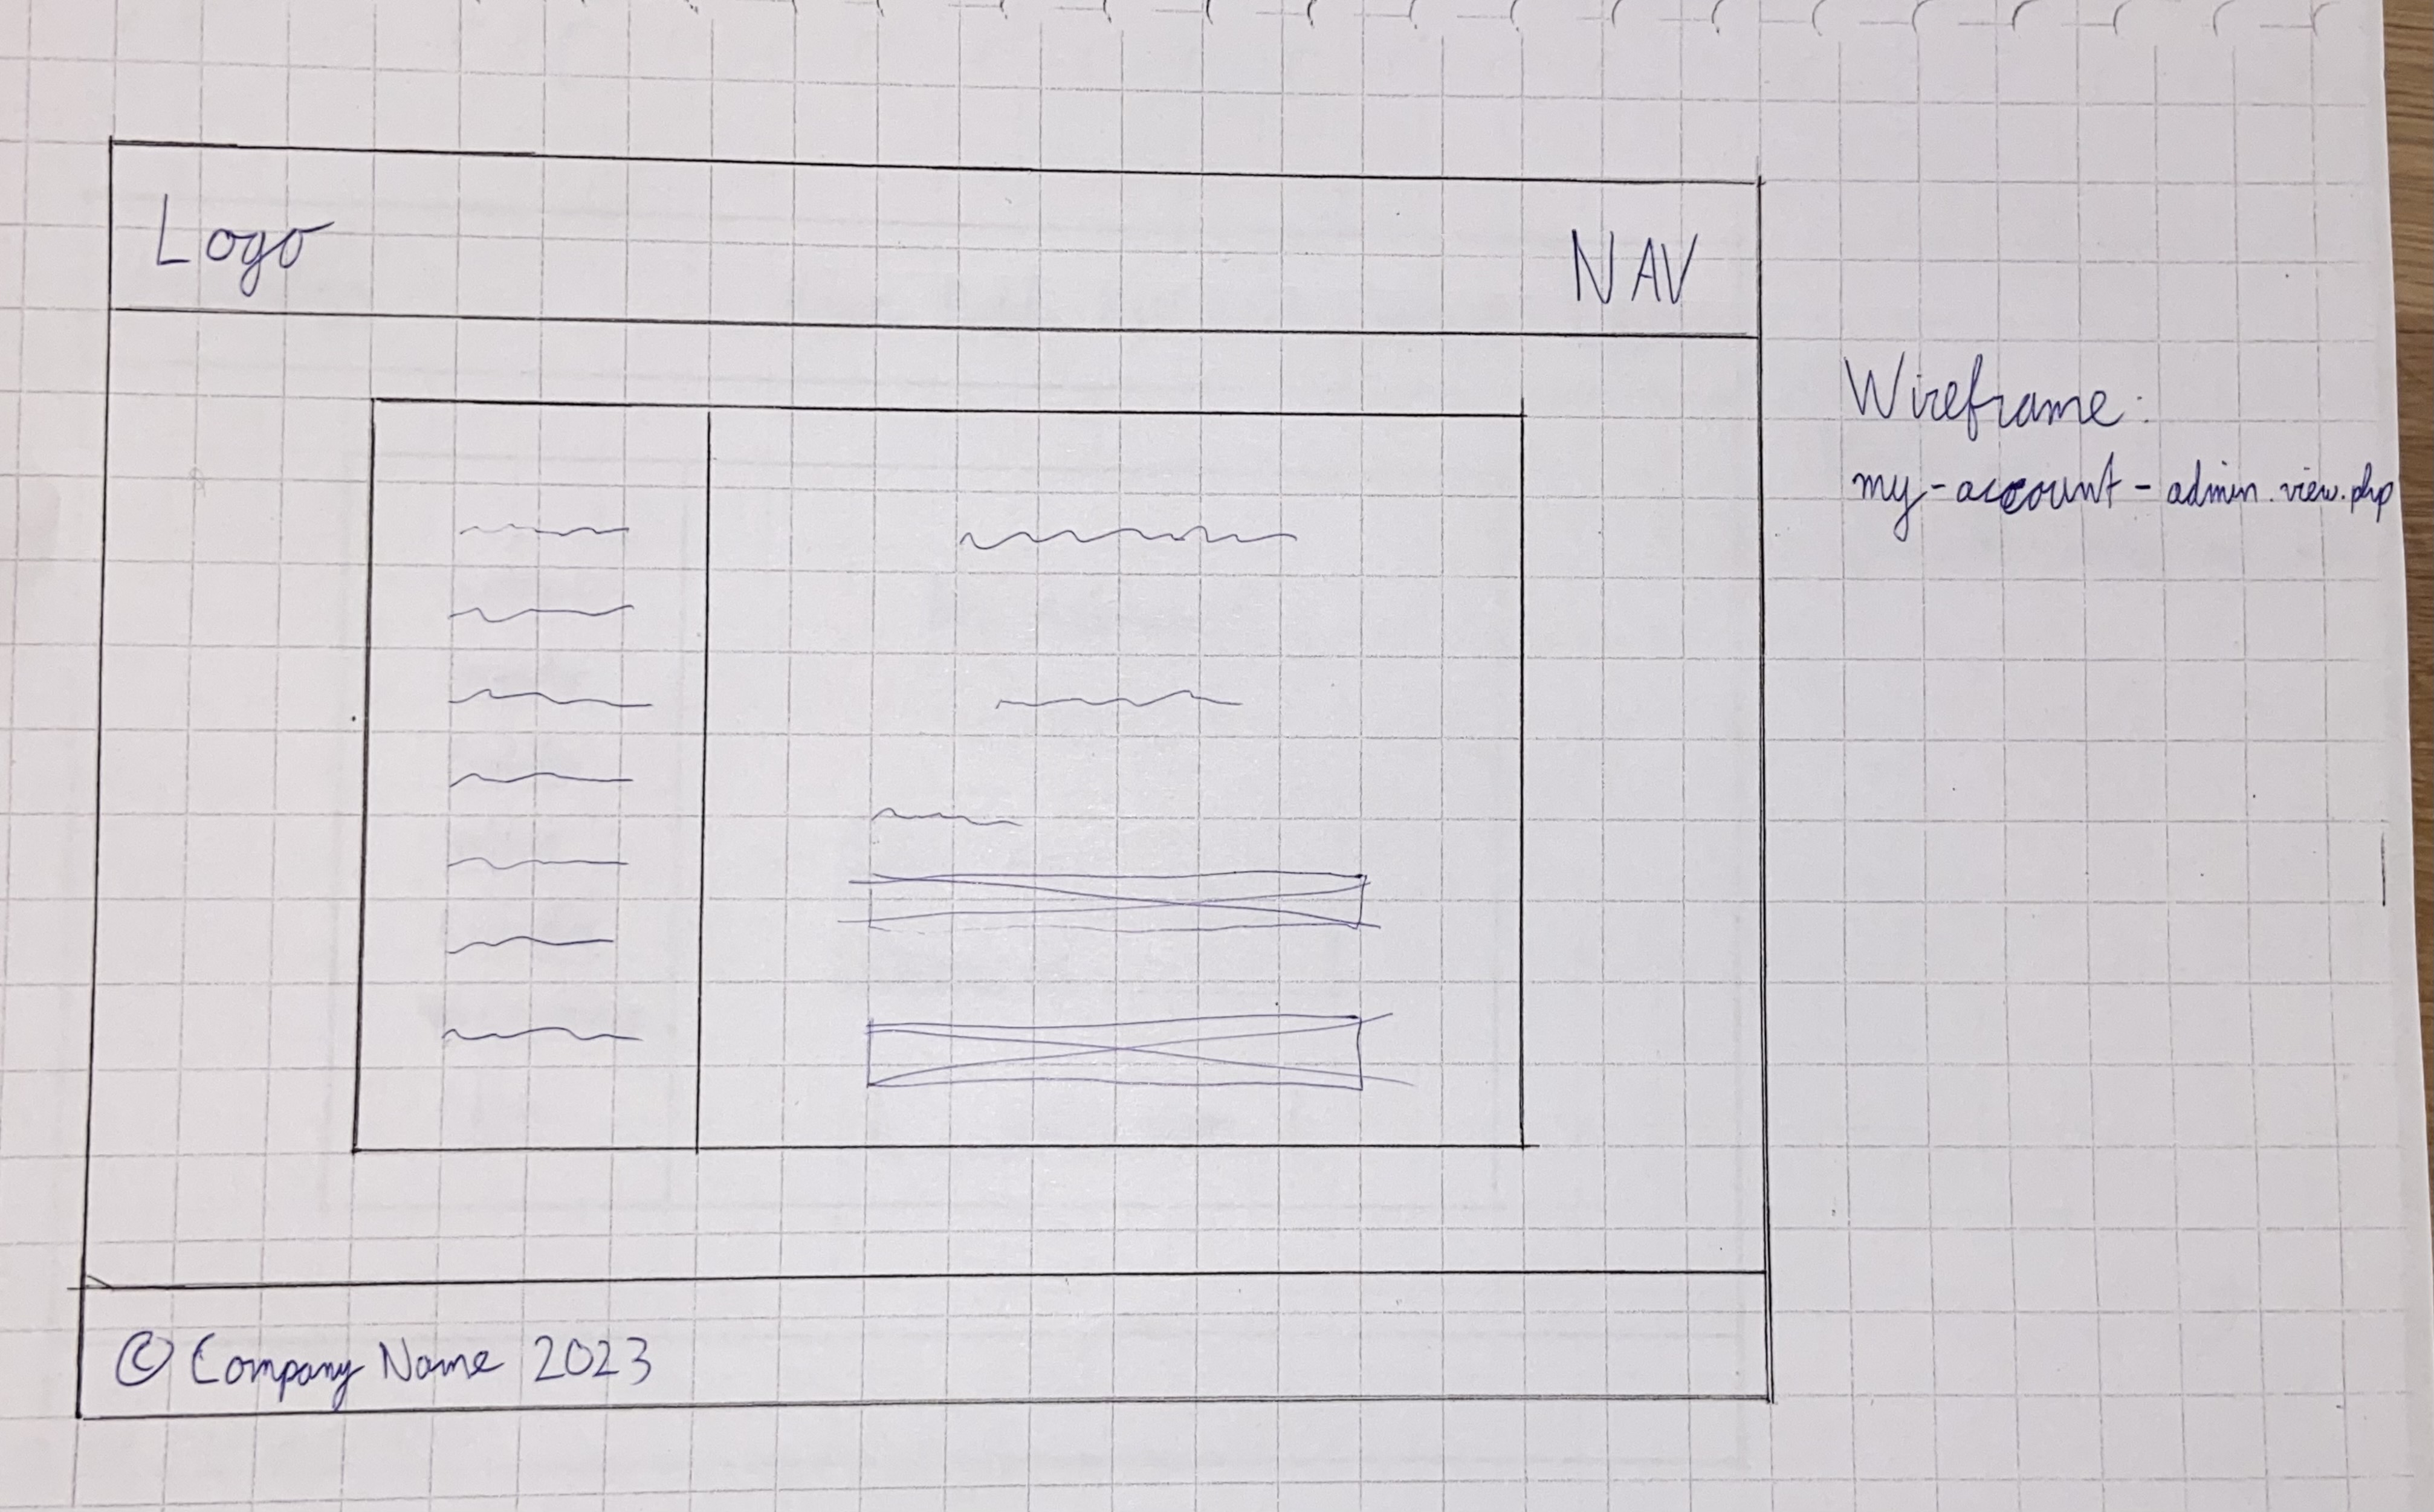 Logo
NAV
Wireframe:
my-account-admin.view.php
© Company Name 2023